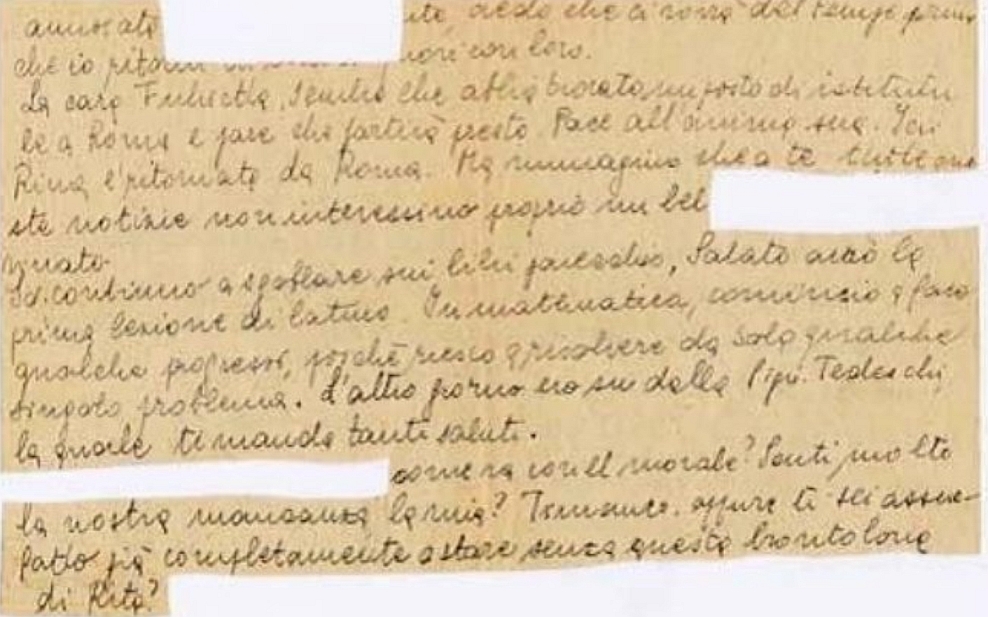 annoiata
che ci vorrà del tempo prima
che io con loro.
La cara Fulvietta, sembra che abbia trovato un posto di istitutri
ce a Roma e pare che partirà presto. Pace all'anima sua. Ieri
Rina è ritornata da Roma. Ma immagino che a te tutte que
ste notizie non interessino proprio un bel
nato.
Io continuo a sgobbare sui libri parecchio, Sabato avrò la
prima lezione di latino. In matematica, comincio a fare
qualche progresso, poichè riesco a risolvere da sola qualche
singolo problema. L'altro giorno ero su dalla Pipi Tedeschi,
la quale ti manda tanti saluti.
come va con il morale? Senti molto
la nostra mancanza la mia? oppure ti sei assue-
fatto già completamente a stare senza questa brontolona
di Rita?